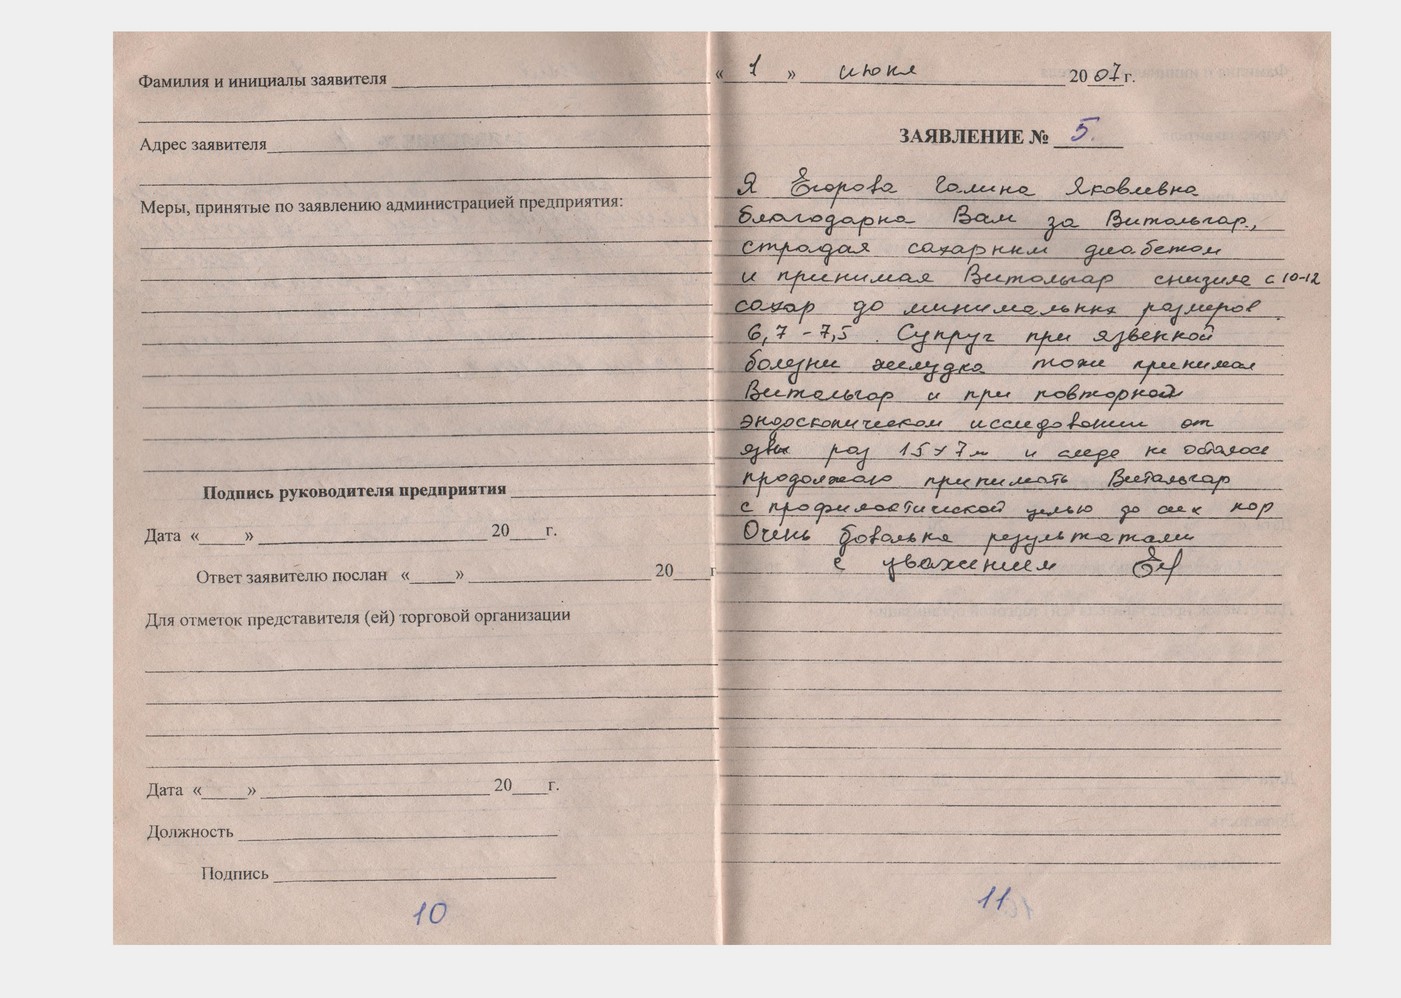 Фамилия и инициалы заявителя
Адрес заявителя
Меры, принятые по заявлению администрацией предприятия:
Подпись руководителя предприятия
Дата « » 20 г.
Ответ заявителю послан « » 20 г
Для отметок представителя (ей) торговой организации
Дата « » 20 г.
Должность
Подпись
10
« 1 » июня 2007 г.
ЗАЯВЛЕНИЕ № 5.
Я Егорова Галина Яковлевна
благодарна Вам за Витальгар,
страдая сахарным диабетом
и принимая Витальгар снизила с 10-12
сахар до минимальных размеров
6,7 - 7,5. Супруг при язвенной
болезни желудка тоже принимал
Витальгар и при повторной
эндоскопическом исследовании от
язвы раз 15х7м и следа не осталось
продолжаю принимать Витальгар
с профилактической целью до сих пор
Очень довольна результатами
с уважением
11